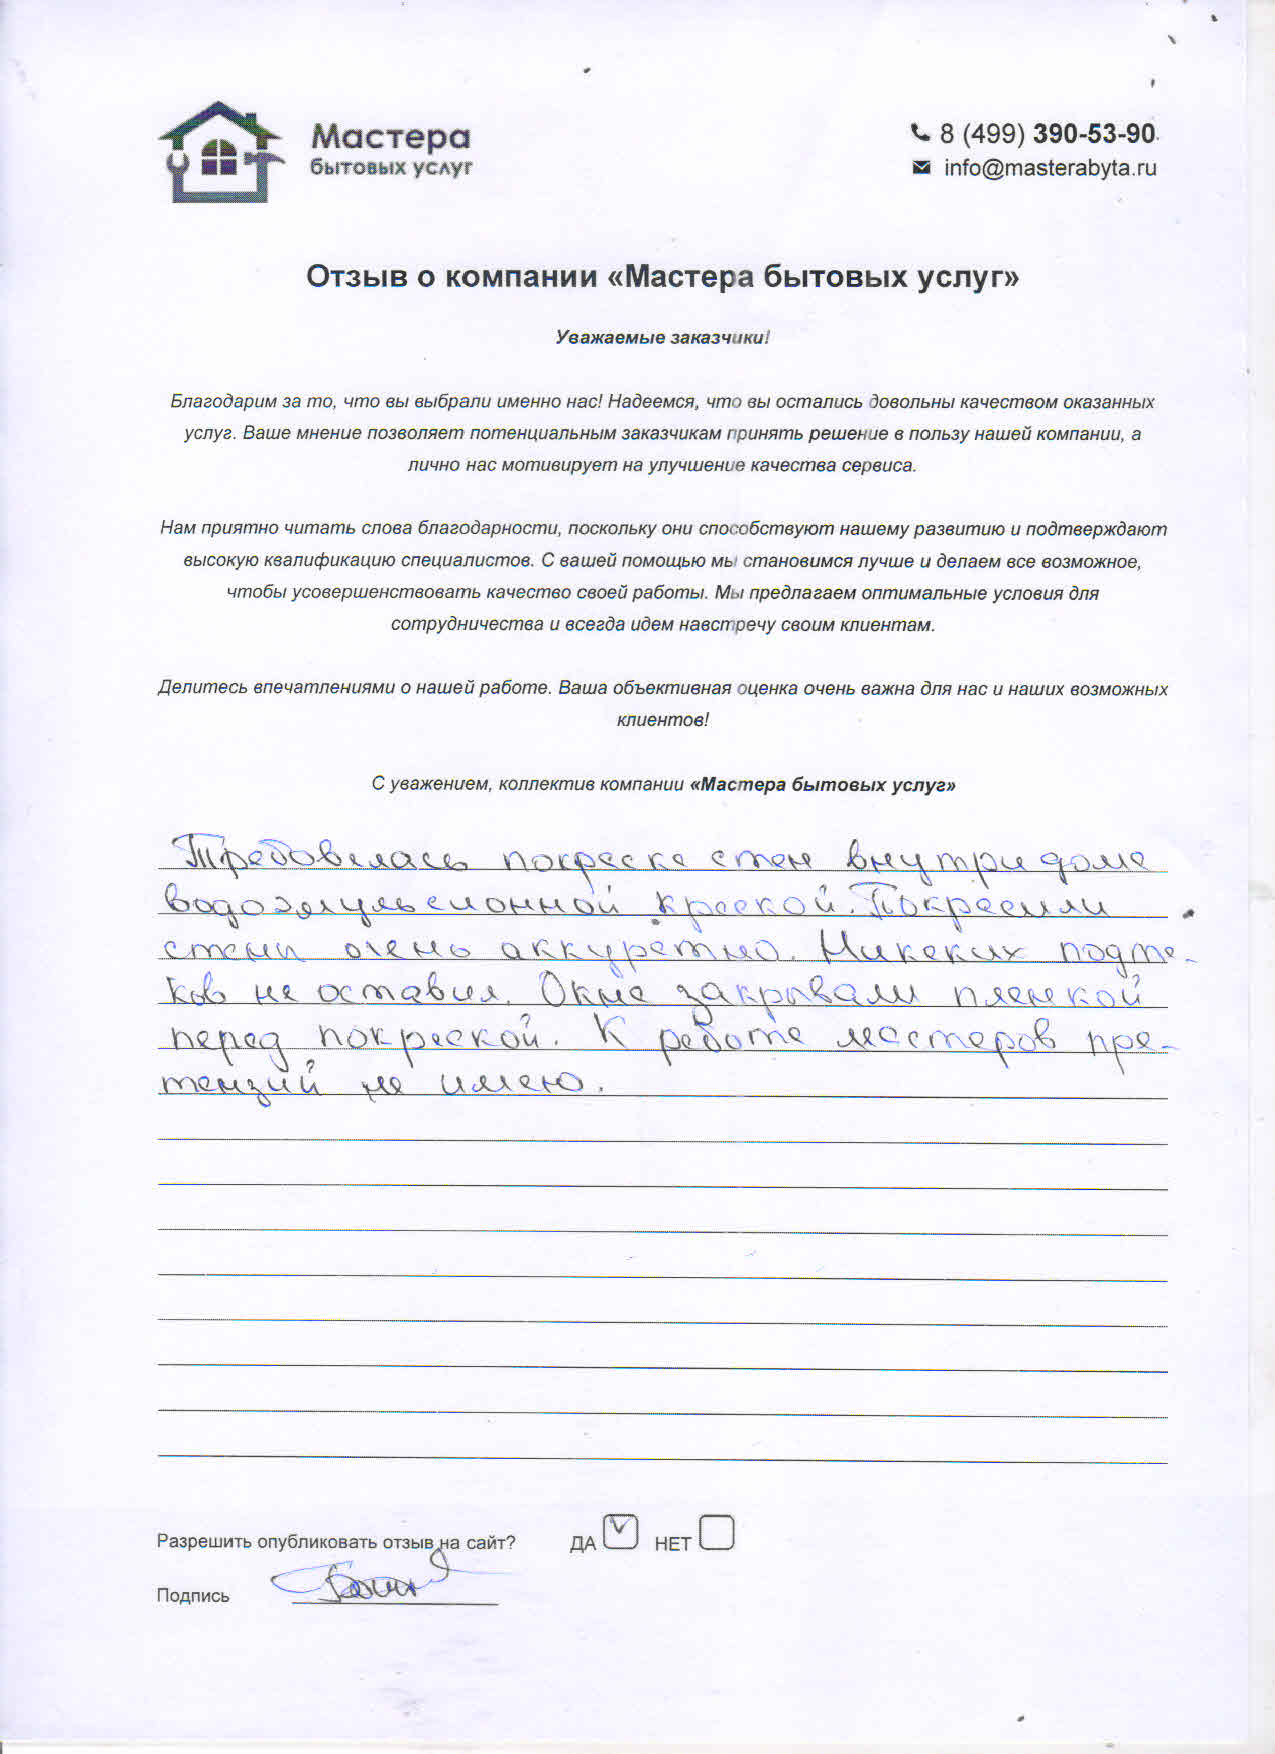 Мастера
бытовых услуг
8 (499) 390-53-90
info@masterabyta.ru
Отзыв о компании «Мастера бытовых услуг»
Уважаемые заказчики!
Благодарим за то, что вы выбрали именно нас! Надеемся, что вы остались довольны качеством оказанных
услуг. Ваше мнение позволяет потенциальным заказчикам принять решение в пользу нашей компании, а
лично нас мотивирует на улучшение качества сервиса.
Нам приятно читать слова благодарности, поскольку они способствуют нашему развитию и подтверждают
высокую квалификацию специалистов. С вашей помощью мы становимся лучше и делаем все возможное,
чтобы усовершенствовать качество своей работы. Мы предлагаем оптимальные условия для
сотрудничества и всегда идем навстречу своим клиентам.
Делитесь впечатлениями о нашей работе. Ваша объективная оценка очень важна для нас и наших возможных
клиентов!
С уважением, коллектив компании «Мастера бытовых услуг»
Требовалась покраска стен внутри дома
водоэмульсионной краской. Покрасили
стены очень аккуратно. Никаких подте-
ков не оставил. Окна закрывали пленкой
перед покраской. К работе мастеров пре-
тензий не имею.
Разрешить опубликовать отзыв на сайт? ДА НЕТ
Подпись